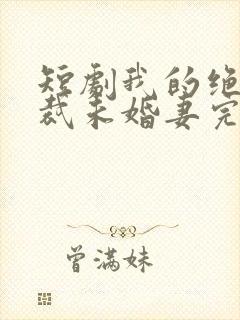 短劇我的绝
裁未婚妻完
曾满妹